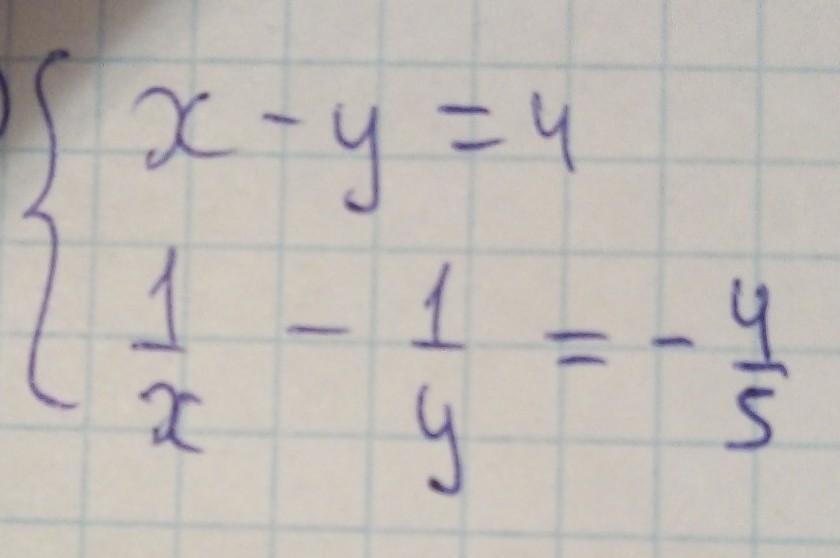 x - y = 4
1/x - 1/y = - 4/5